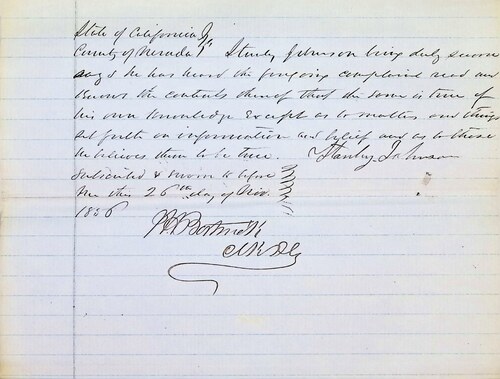 State of California }
County of Nevada } ss Stanly Johnson being duly sworn
says he has heard the foregoing complaint read and
knows the contents thereof that the same is true of
his own knowledge Except as to matters and things
set forth on information and belief and as to those
he believes them to be true. Stanly Johnson
Subscribed & sworn to before
me this 26th day of Nov.
1856